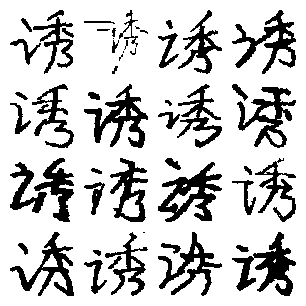 诱诱诱诱
诱诱诱诱
诱诱诱诱
诱诱诱诱